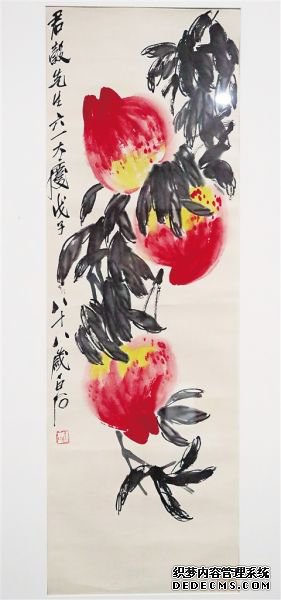 君毅先生六一大慶戊子
八十八歲白石
织梦内容管理系统
DEDECMS.COM